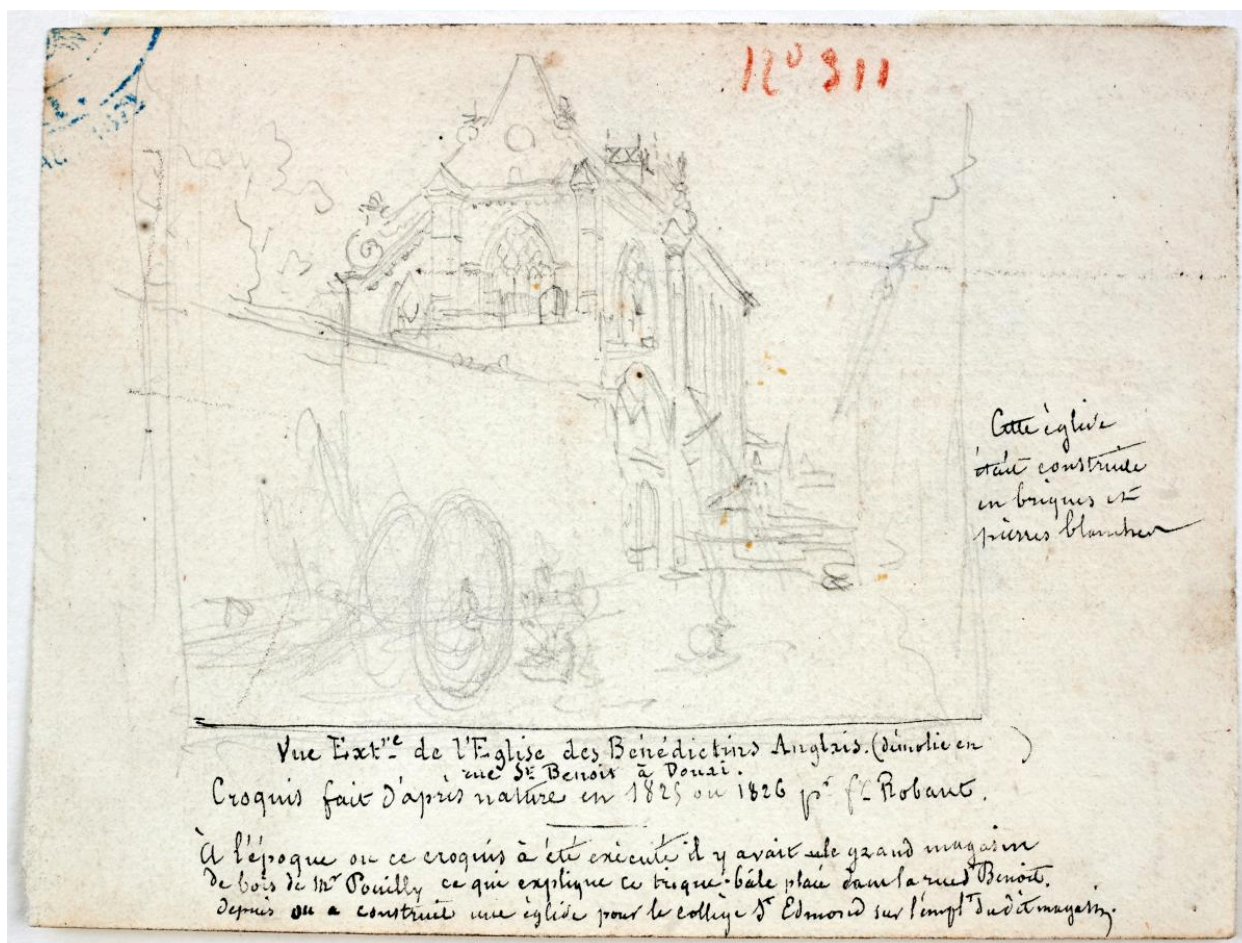 Nº 311
Cette église
était construite
en briques et
pierres blanches
Vue Extre de l'Eglise des Bénédictins Anglais. (démolie en )
rue St Benoit à Douai.
Croquis fait d'après nature en 1825 ou 1826 pr fx Robaut.
À l'époque ou ce croquis à été exécuté il y avait le grand magasin
de bois de Mr Pouilly ce qui explique ce trique-bâle placé dans la rue St Benoit.
depuis on a construit une église pour le collège St Edmond sur l'empt dudit magasin.